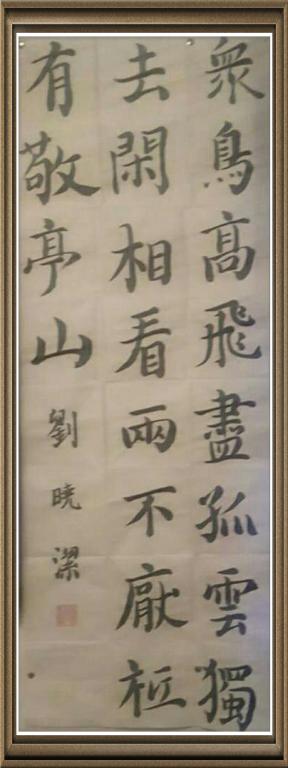 衆鳥高飛盡孤雲獨
去閑相看兩不厭秪
有敬亭山
劉曉潔